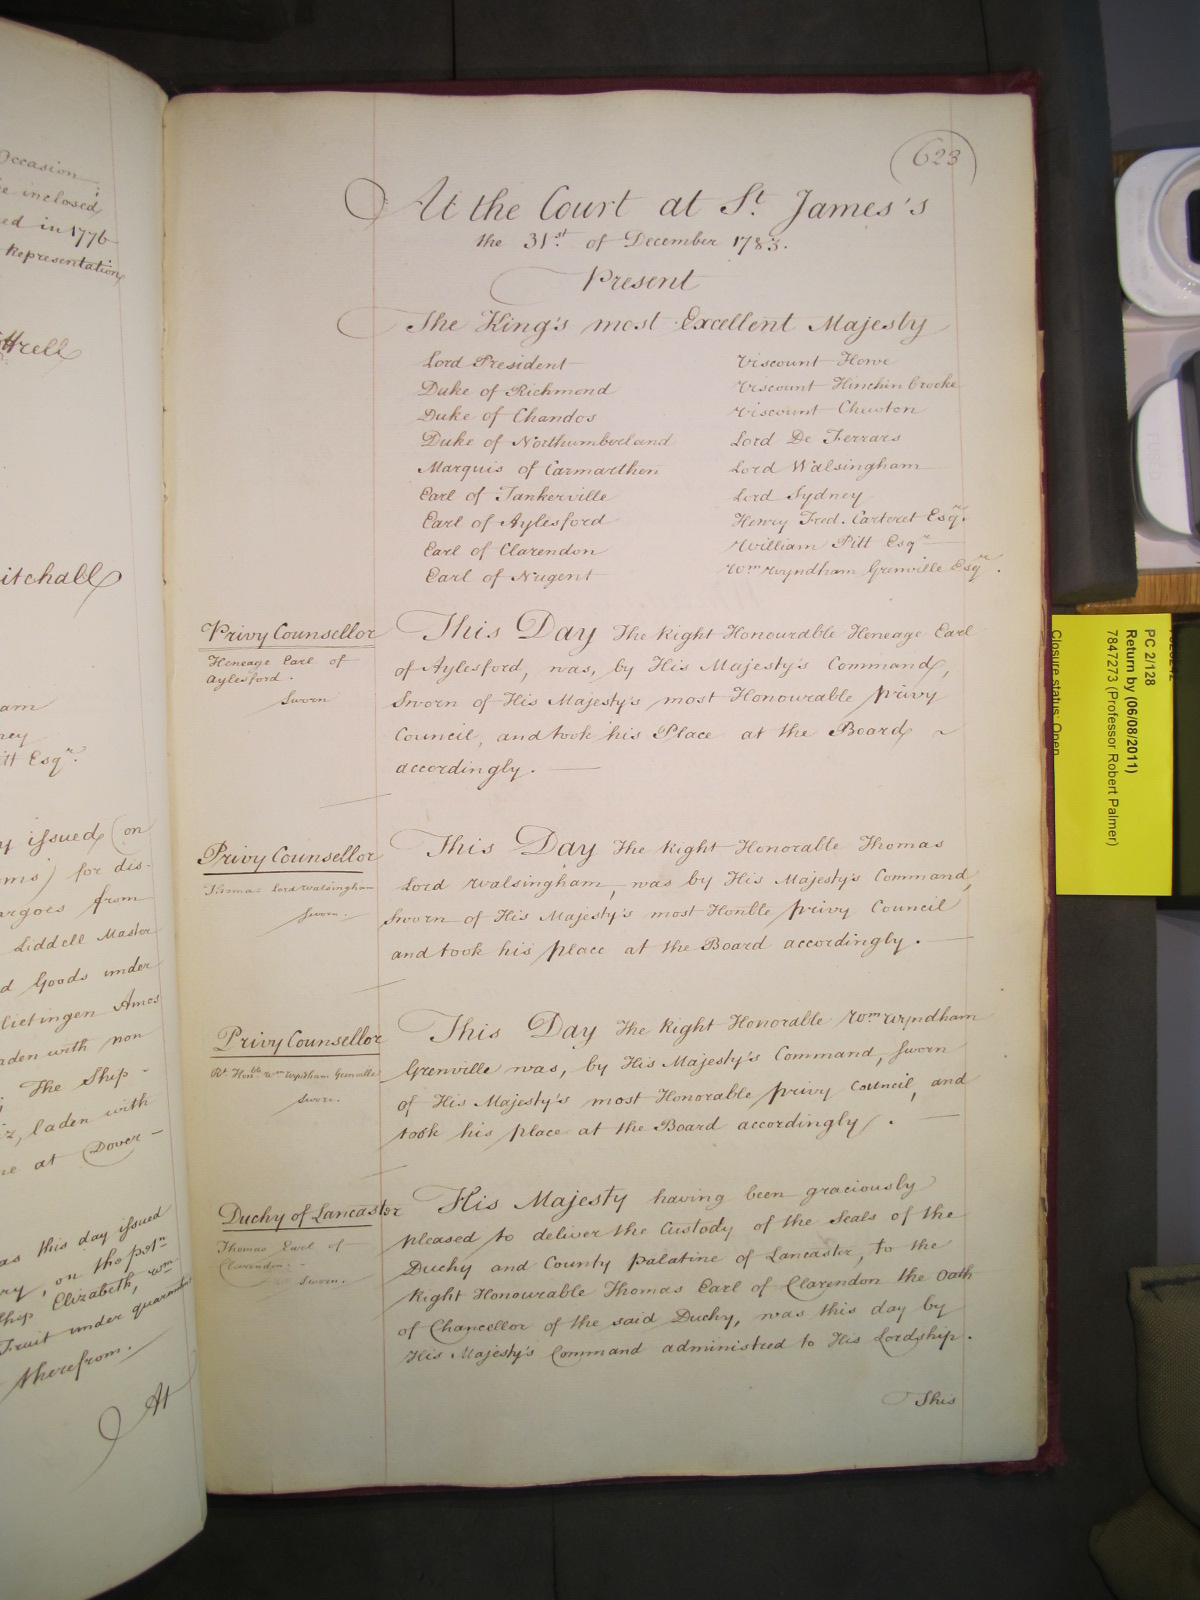 Occasion
e inclosed
ed in 1776
Representation
ttrell
itchall
am
ney
tt Esqr.
y issued (on
oms) for dis-
argoes from
Liddell Master
d Goods under
lietingen Ames
aden with non
The Ship -
iz, laden with
ne at Dover -
as this day issued
ory, on the petn
Ship Elizabeth, Wm
Fruit under quarantine
therefrom.
At
623
At the Court at St. James's
the 31st. of December 1783.
Present
The King's most Excellent Majesty
Lord President
Duke of Richmond
Duke of Chandos
Duke of Northumberland
Marquis of Carmarthen
Earl of Tankerville
Earl of Aylesford
Earl of Clarendon
Earl of Nugent
Viscount Howe
Viscount Hinchinbrooke
Viscount Chewton
Lord De Ferrars
Lord Walsingham
Lord Sydney
Henry Fred. Carteret Esqr.
William Pitt Esqr
Wm Wyndham Grenville Esqr.
Privy Counsellor
Heneage Earl of
Aylesford.
Sworn
This Day The Right Honourable Heneage Earl
of Aylesford, was, by His Majesty's Command,
Sworn of His Majesty's most Honourable privy
Council, and took his Place at the Board ~
accordingly. —
Privy Counsellor
Thomas Lord Walsingham
Sworn.
This Day The Right Honorable Thomas
Lord Walsingham, was by His Majesty's Command,
Sworn of His Majesty's most Honble privy Council
and took his place at the Board accordingly. —
Privy Counsellor
Rt. Honble Wm Wyndham Grenville
Sworn.
This Day The Right Honorable Wm Wyndham
Grenville was, by His Majesty's Command, Sworn
of His Majesty's most Honorable privy Council, and
took his place at the Board accordingly. —
Duchy of Lancaster
Thomas Earl of
Clarendon
Sworn.
His Majesty having been graciously
pleased to deliver the Custody of the Seals of the
Duchy and County Palatine of Lancaster, to the
Right Honourable Thomas Earl of Clarendon the Oath
of Chancellor of the said Duchy, was this day by
His Majesty's Command administred to His Lordship.
This
PC 2/128
Return by (06/08/2011)
7847273 (Professor Robert Palmer)
Closure status: Open